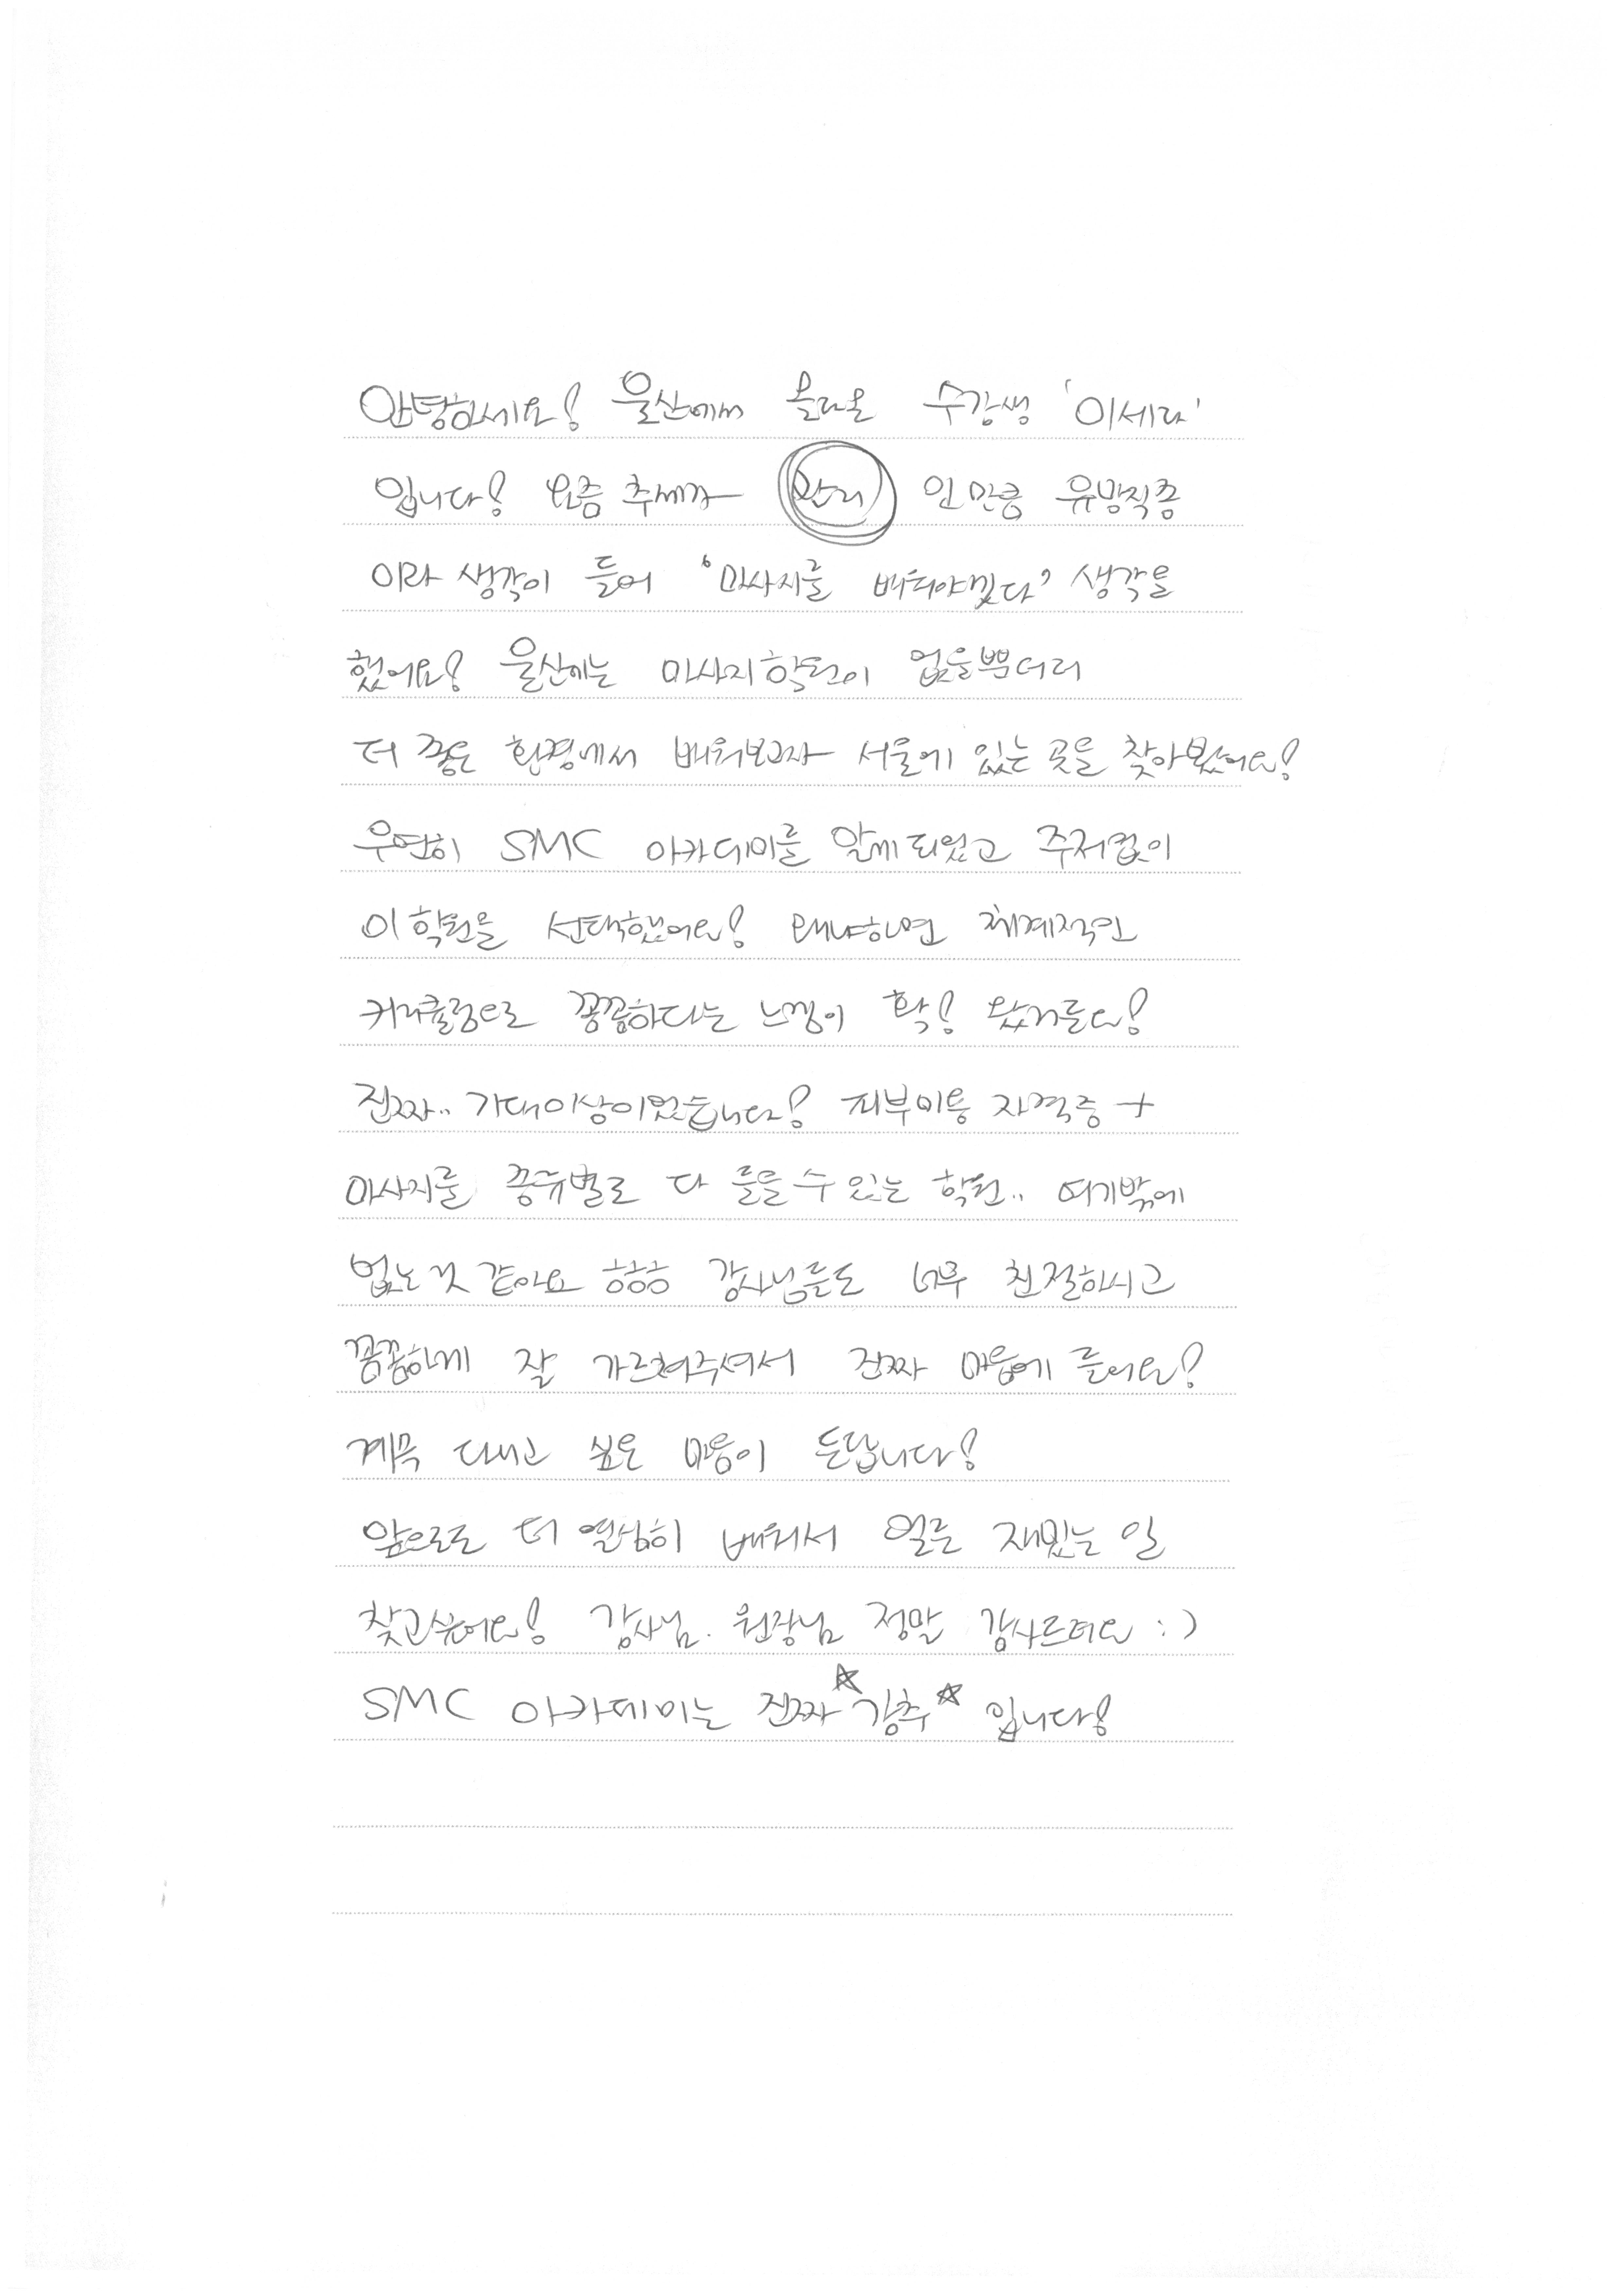 안녕하세요! 울산에서 올라온 수강생 '이세라'
입니다! 요즘 추세가 관리 인만큼 유망직종
이라 생각이 들어 '마사지를 배워야겠다' 생각을
했어요! 울산에는 마사지학원이 없을뿐더러
더 좋은 환경에서 배워보고자 서울에 있는 곳을 찾아봤어요!
우연히 SMC 아카데미를 알게되었고 주저없이
이 학원을 선택했어요! 왜냐하면 체계적인
커리큘럼으로 꼼꼼하다는 느낌이 확! 왔거든요!
진짜.. 기대이상이었습니다! 피부미용 자격증 +
마사지를 종류별로 다 들을 수 있는 학원.. 여기밖에
없는 것 같아요 ㅎㅎㅎ 강사님들도 너무 친절하시고
꼼꼼하게 잘 가르쳐주셔서 진짜 마음에 들어요!
계속 다니고 싶은 마음이 든답니다!
앞으로도 더 열심히 배워서 얼른 재밌는 일
찾고싶어요! 강사님. 원장님 정말 감사드려요 :)
SMC 아카데미는 진짜 ☆강추☆ 입니다!